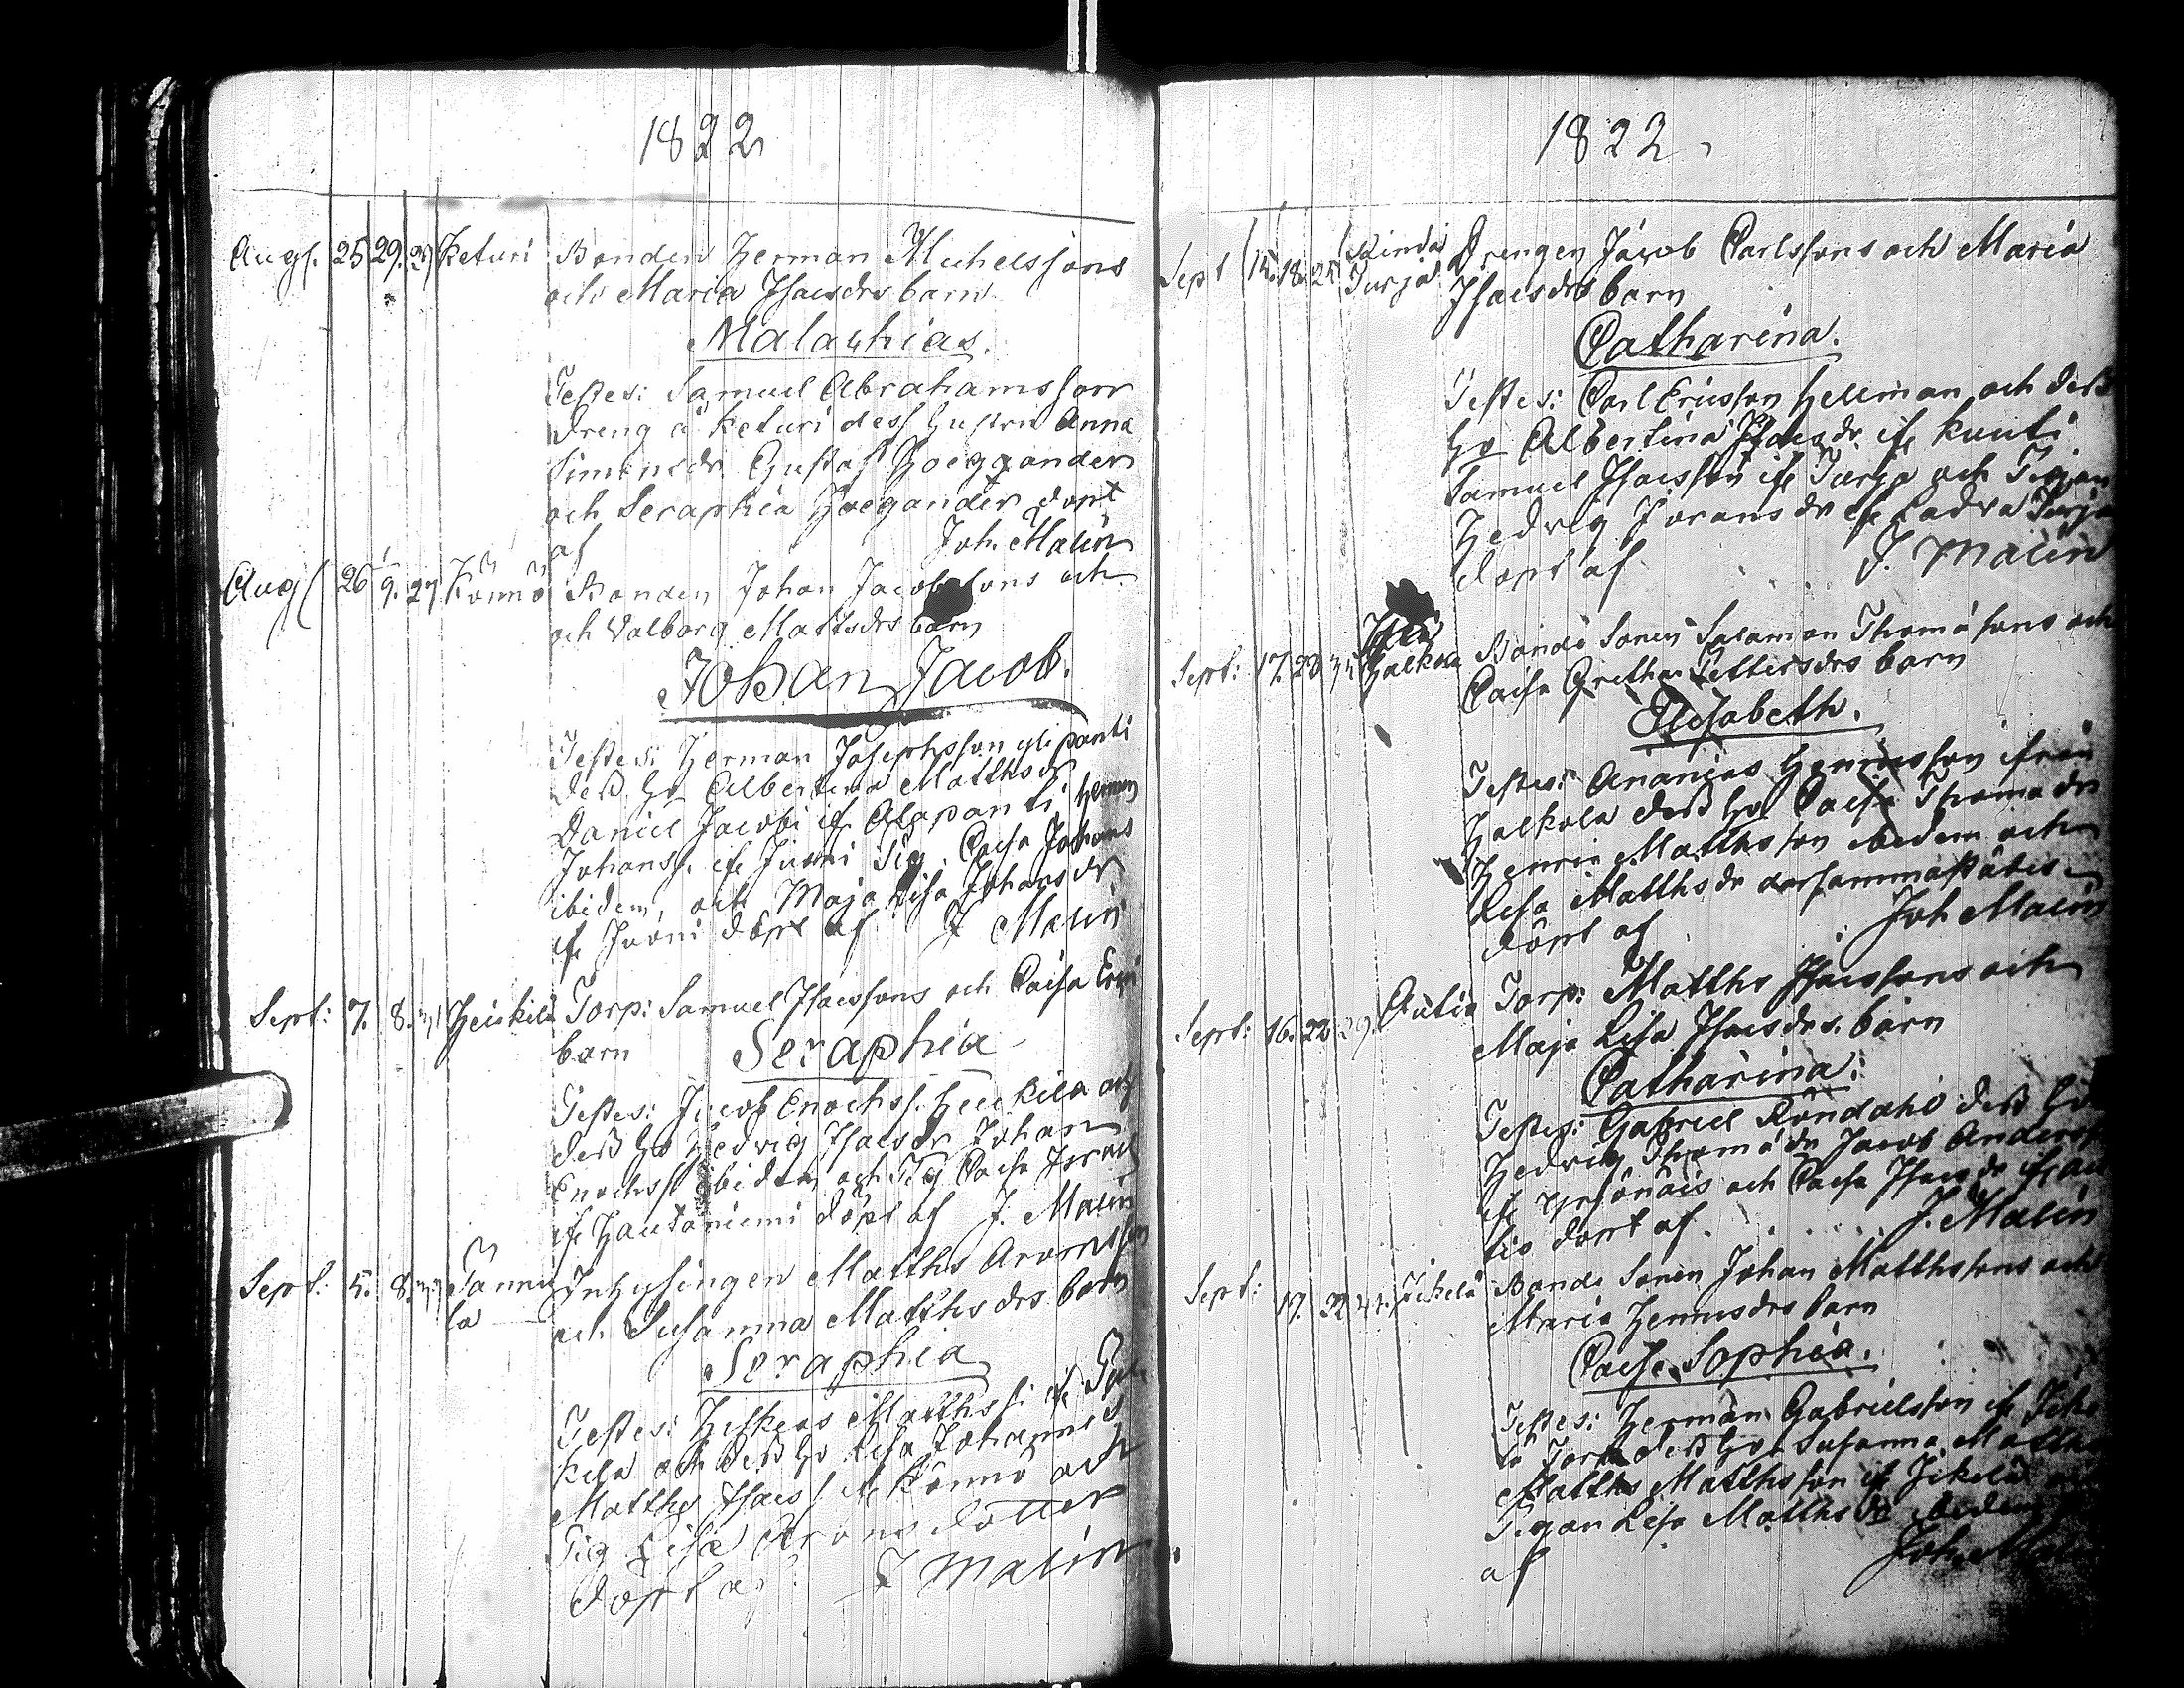 1822
Aug. 25 29. Keturi Bonden Herman Michelssons
och Maria Isacsdrs barn
Malachias.
Testes: Samuel Abrahamsson
Dreng å Keturi dess hustru Anna
Simonsdr Gustaf Hoeggander
och Seraphia Hoegander döpt
af Joh. Malin
Aug 26 9. 27 Könnö Bonden Johan Jacobssons och
och Valborg Mattsdrs barn
Johan Jacob.
Testes: Herman Josephsson Alapanti
dess h Albertina Matthsdr
Daniel Jacobi if Alapanti Herman
Johanss. if Juoni Pig. Caisa Johans
ibidem, och Maja Lisa Johansdr
if Juoni döpt af J Malin
Sept: 7. 8. Heickilä Torp: Samuel Isacssons och Caisa
barn Seraphia
Testes: Jacob Enochss. Heickilä och
dess h Hedvig Isacsdr Johan
Enochss ibidem och Pig Caisa
if Hautaniemi döpt af J. Malin
Sept. 5. 8. Tannila Inhysingen Matths Aronsson
och Susanna Matthsdrs barn
Seraphia
Testes: Matthss: if
kila och dess h Lisa Johannis
Matths Isacss if Könnö och
Pig Lisa Arons dotter
döpt af J Malin
1822
Sept 15. 18. 25 Turja Drengen Jacob Carlssons och Maria
Isacsdrs barn
Catharina.
Testes: Carl Ericsson Hellman och dess
h Albertina Isacsdr if Knuti
Samuel Isacsson if Turja och Pigan
Hedvig Joransdr if Ladva Turja
döpt af J. Malin
Sept: 17. 23 Halkola Bonde Sonen Salamon Thomæsons och
Caisa Gretha Pettersdrs barn
Elisabeth.
Testes: Ananias Henricsson ifrån
Halkola dess h Caisa Thomædr
Henric Matthsson ibidem och
Lisa Matthsdr dersammastädes
döpt af Joh Malin
Sept: 16. 22 29. Autio Torp: Matths Isacssons och
Maja Lisa Isacsdrs. barn
Catharina.
Testes: Gabriel Röndahl dess h
Hedvig Thomædr Jacob Anderss
if Yrjänäis och Caisa Isacsdr if Au
tio döpt af J. Malin
Sept: 17. 22 Jikelä Bonde Sonen Johan Matthssons och
Maria Henricsdrs barn
Caisa Sophia.
Testes: Herman Gabrielsson if Jike
lä Torp dess h Susanna Matths
Matths Matthsson if Jikelä och
Pigan Lisa Matthsdr ibidem
af Joh. Malin